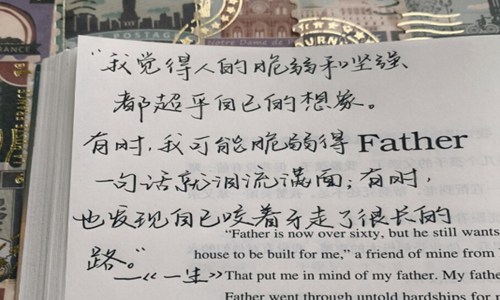 "我觉得人的脆弱和坚强
都超乎自己的想象。
有时,我可能脆弱得 Father
一句话就泪流满面;有时,
也发现自己咬着牙走了很长的
路。"
—《一生》
"Father is now over sixty, but he still wants
house to be built for me," a friend of mine from
That put me in mind of my father. My fathe
Father went through untold hardships for